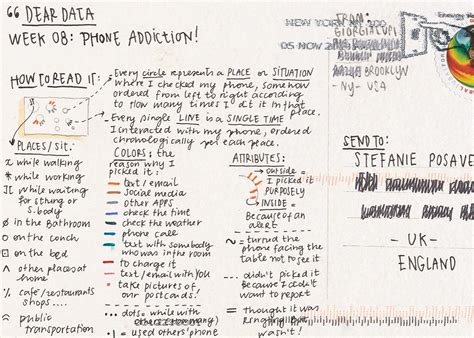 “ DEAR DATA
WEEK 08: PHONE ADDICTION!
HOW TO READ IT:
Every circle represents a PLACE or SITUATION
where I checked my phone, somehow
ordered from left to right according
to how many times I did it in that
place.
Every single LINE is a SINGLE TIME
I interacted with my phone, ordered
chronologically per each peace.
PLACES / SIT:
x while walking
* while working
while waiting
for things or
s.body
ø in the Bathroom
on the couch
on the bed
^ other places at
home
% café/restaurants
shops....
≈ public
transportation
COLORS: the
reason why I
picked it:
text / email
social media
other APPS
check the time
check the weather
phone call
text with somebody
who was in the room
to charge it
text/email with You
take pictures of
our postcards!
dots: while with
others (how many)
= used others' phone
ATTRIBUTES:
outside =
I picked it
PURPOSELY
INSIDE =
Because of an
alert
~ = turned the
phone facing the
table not to see it
... didn't picked it
Because I didn't
want to report
= thought it was
ringing but it
wasn't!
NEW YORK NY 100
05 NOV
FROM:
GIORGIA LUPI
BROOKLYN
-NY- USA
SEND TO:
STEFANIE POSAVEC
- UK -
ENGLAND